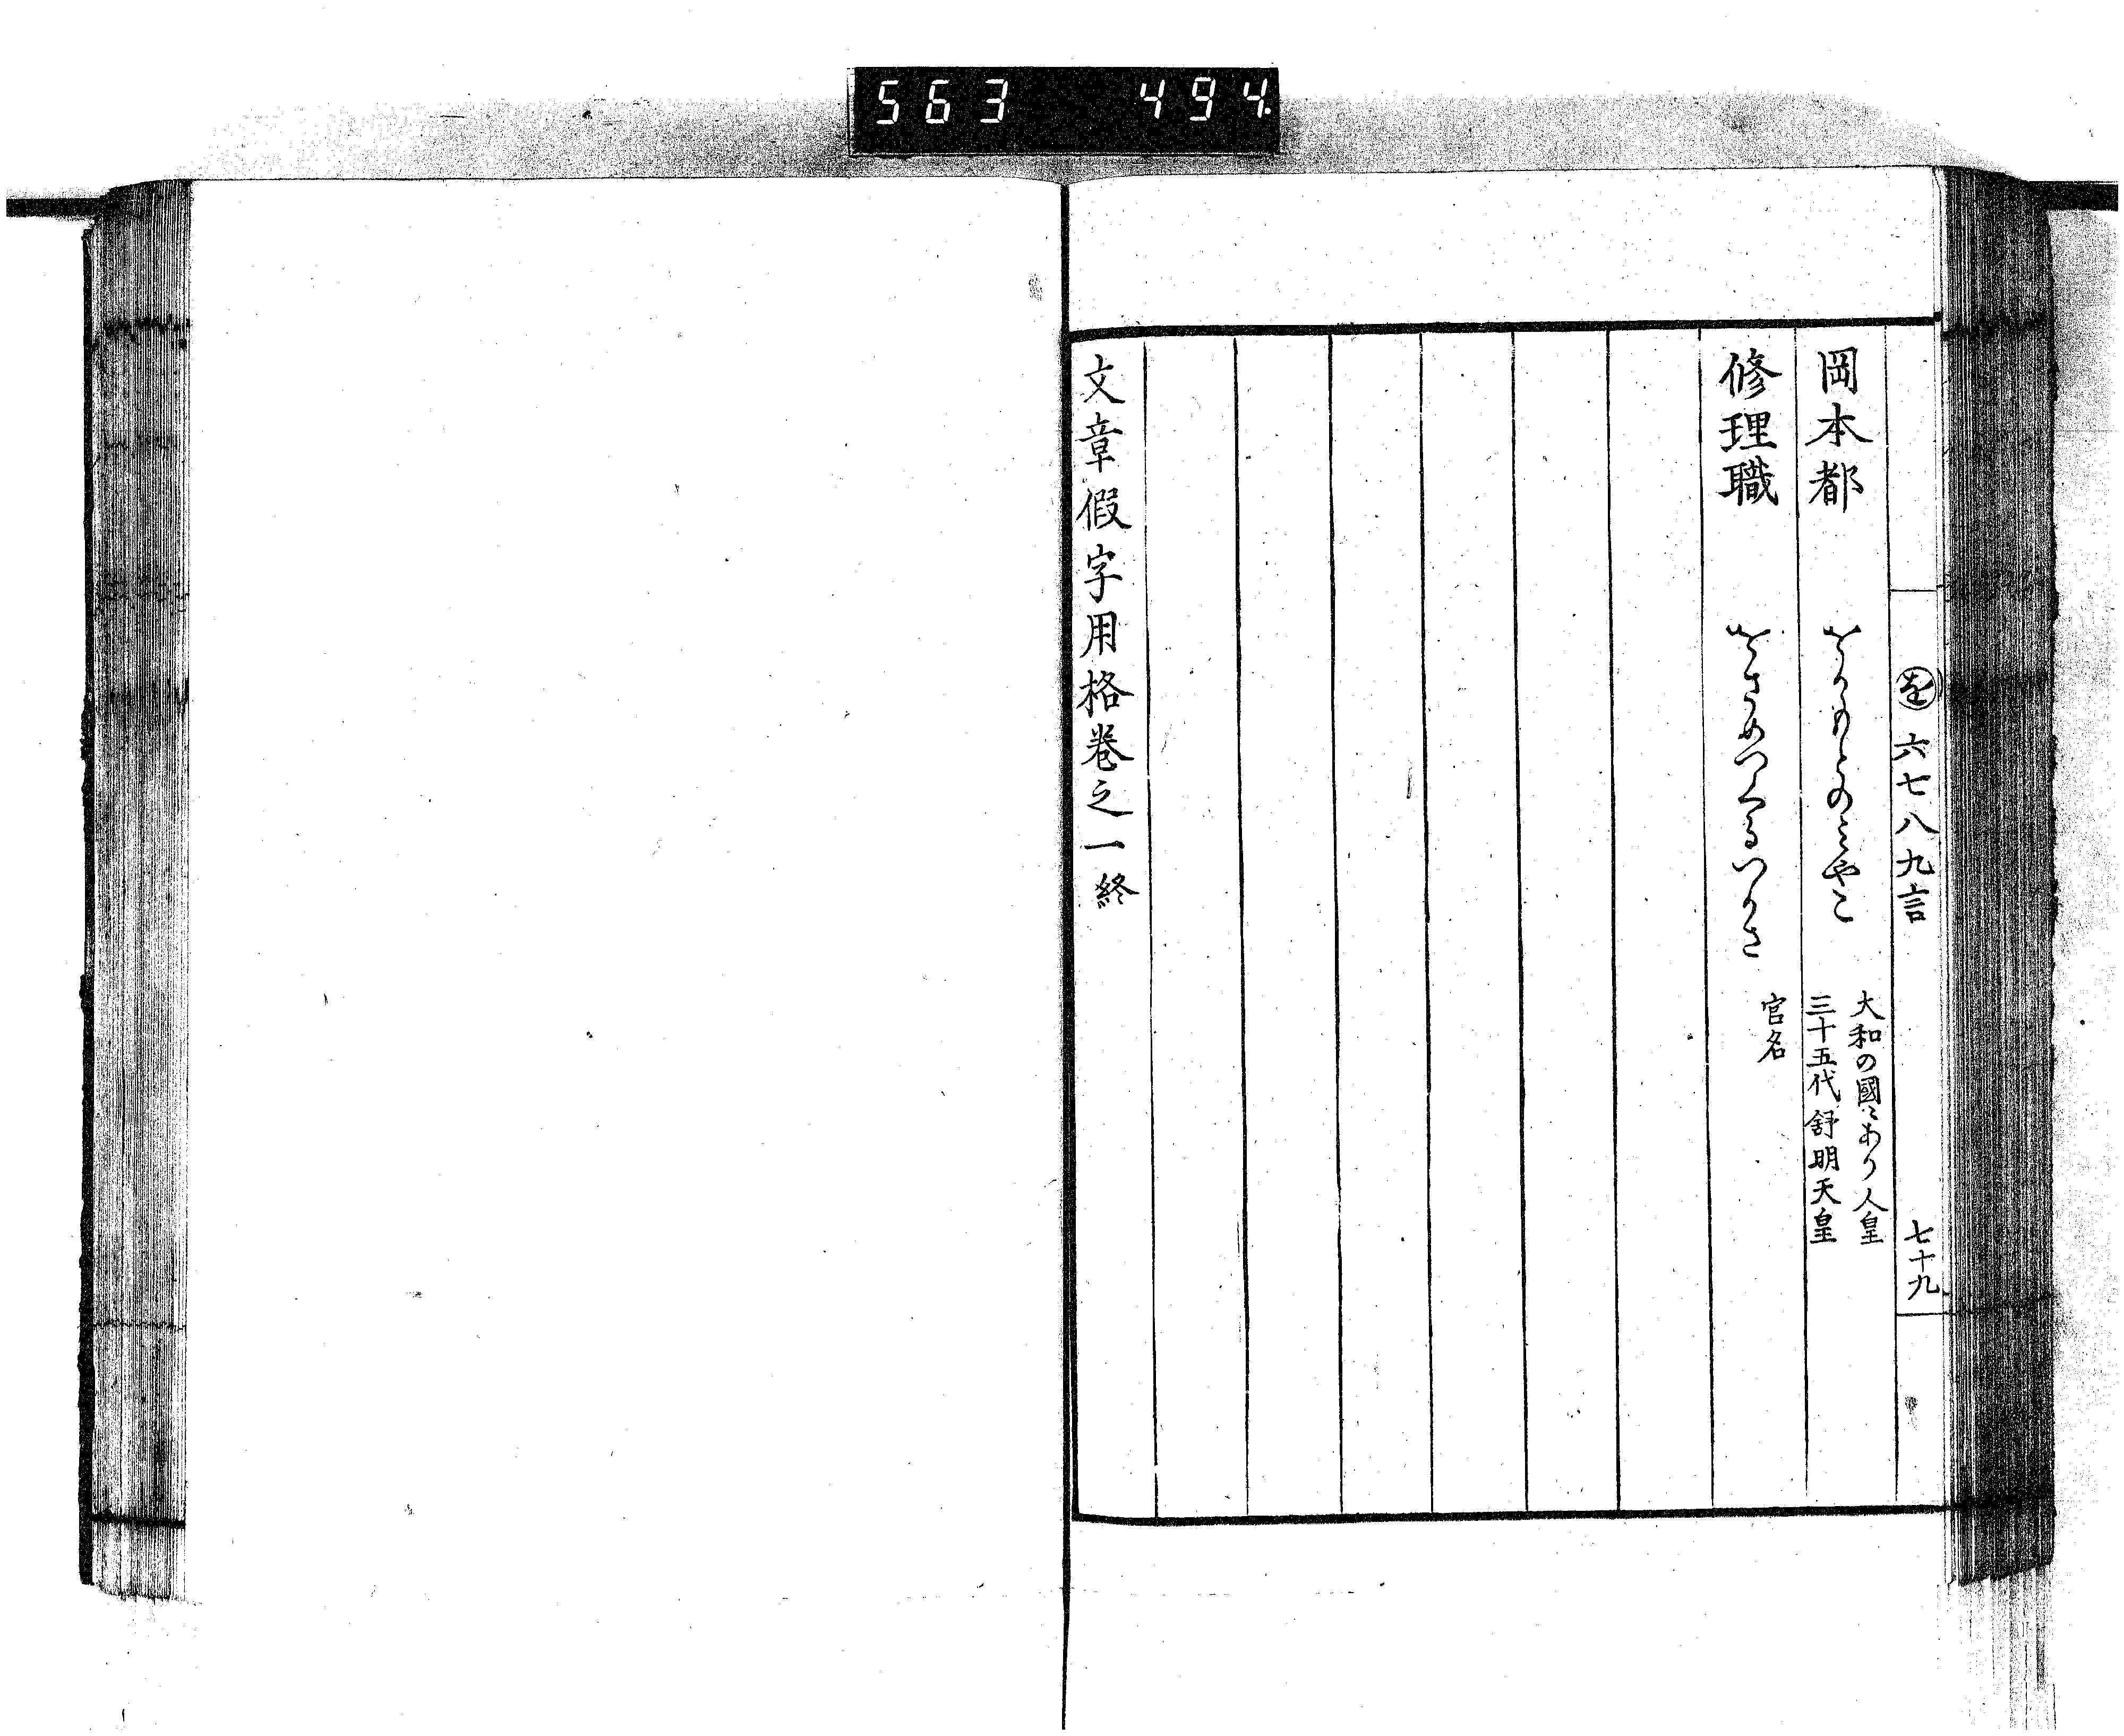 563 494
を 六七八九言 七十九
岡本都 をかもとのみやこ 大和の國にあり人皇
三十五代舒明天皇
修理職 をさめつくるつかさ 官名
文章假字用格卷之一終